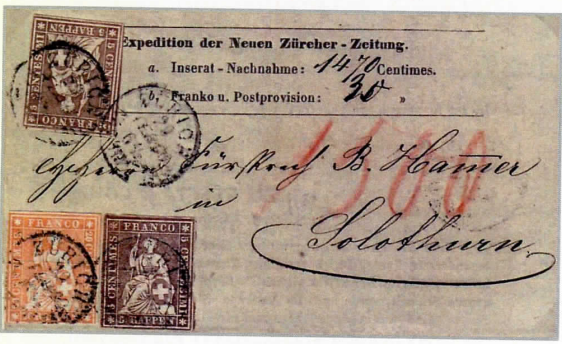 Expedition der Neuen Zürcher-Zeitung.
a. Inserat-Nachnahme: 1470 Centimes.
b. Franko u. Postprovision: 30 "
1500
Fürsprech B. Hammer
in
Solothurn
FRANCO
5 RAPPEN
5 CENTIMES
ZÜRICH
ZÜRICH
FRANCO
ZÜRICH
FRANCO
5 CENTIMES
5 RAPPEN